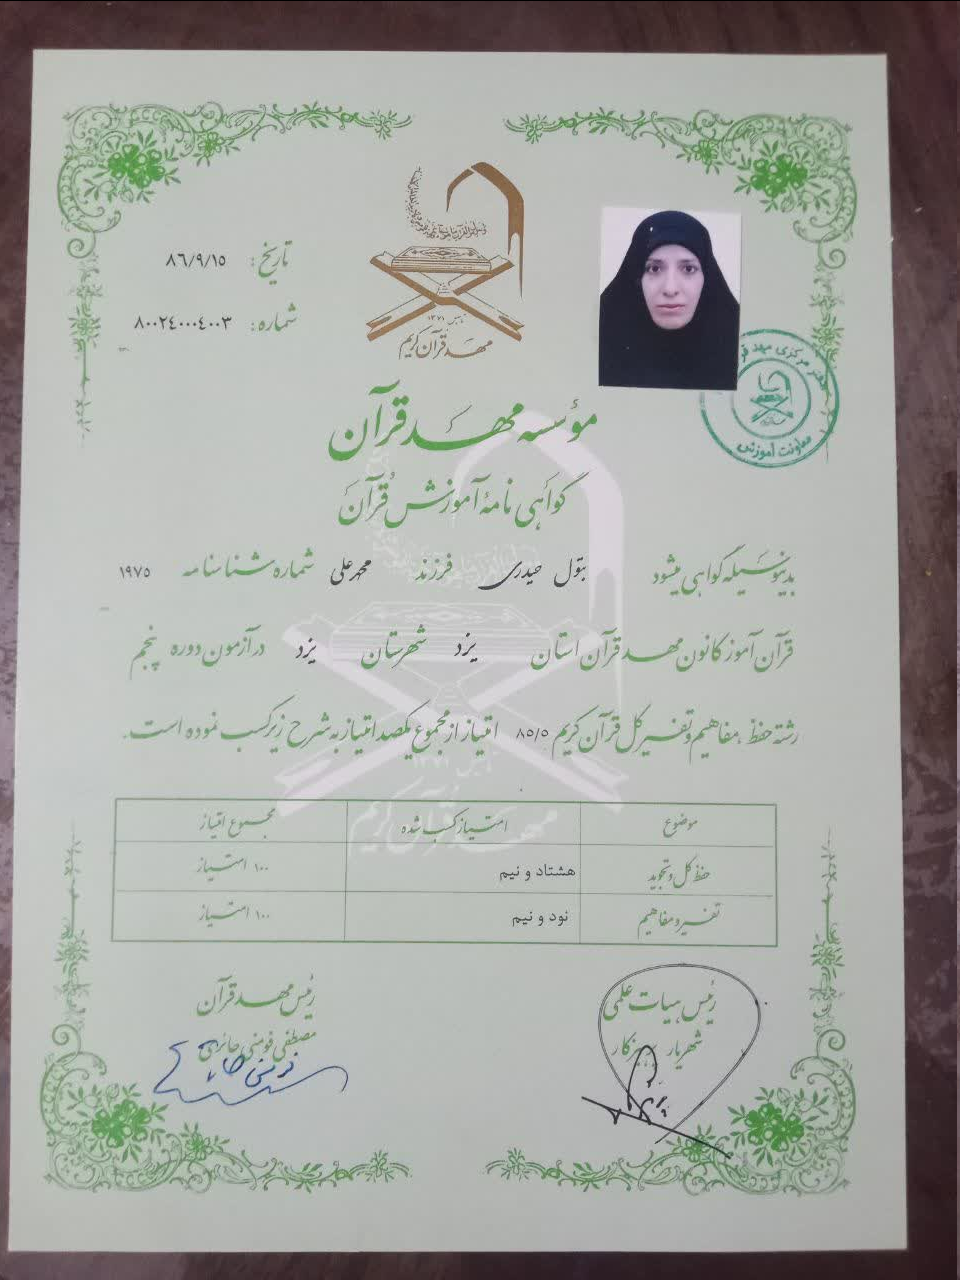 تاریخ: ۸۶/۹/۱۵
شماره: ۸۰۰۲۴۰۰۰۴۰۰۳
تاسیس ۱۳۷۱
مهد قرآن کریم
دفتر مرکزی مهد قرآن
معاونت آموزش
مؤسسه مهد قرآن
گواهی نامهٔ آموزش قرآن
بدینوسیله گواهی میشود بتول حیدری فرزند محمدعلی شماره شناسنامه ۱۹۷۵
قرآن آموز کانون مهد قرآن استان یزد شهرستان یزد در آزمون دوره پنجم
رشته حفظ، مفاهیم و تفسیر کل قرآن کریم ۸۵/۵ امتیاز از مجموع یکصد امتیاز به شرح زیر کسب نموده است.
موضوع امتیاز کسب شده مجموع امتیاز
حفظ کل و تجوید هشتاد و نیم ۱۰۰ امتیاز
تفسیر و مفاهیم نود و نیم ۱۰۰ امتیاز
رئیس هیات علمی رئیس مهد قرآن
شهریار پرهیزکار مصطفی فومنی حائری